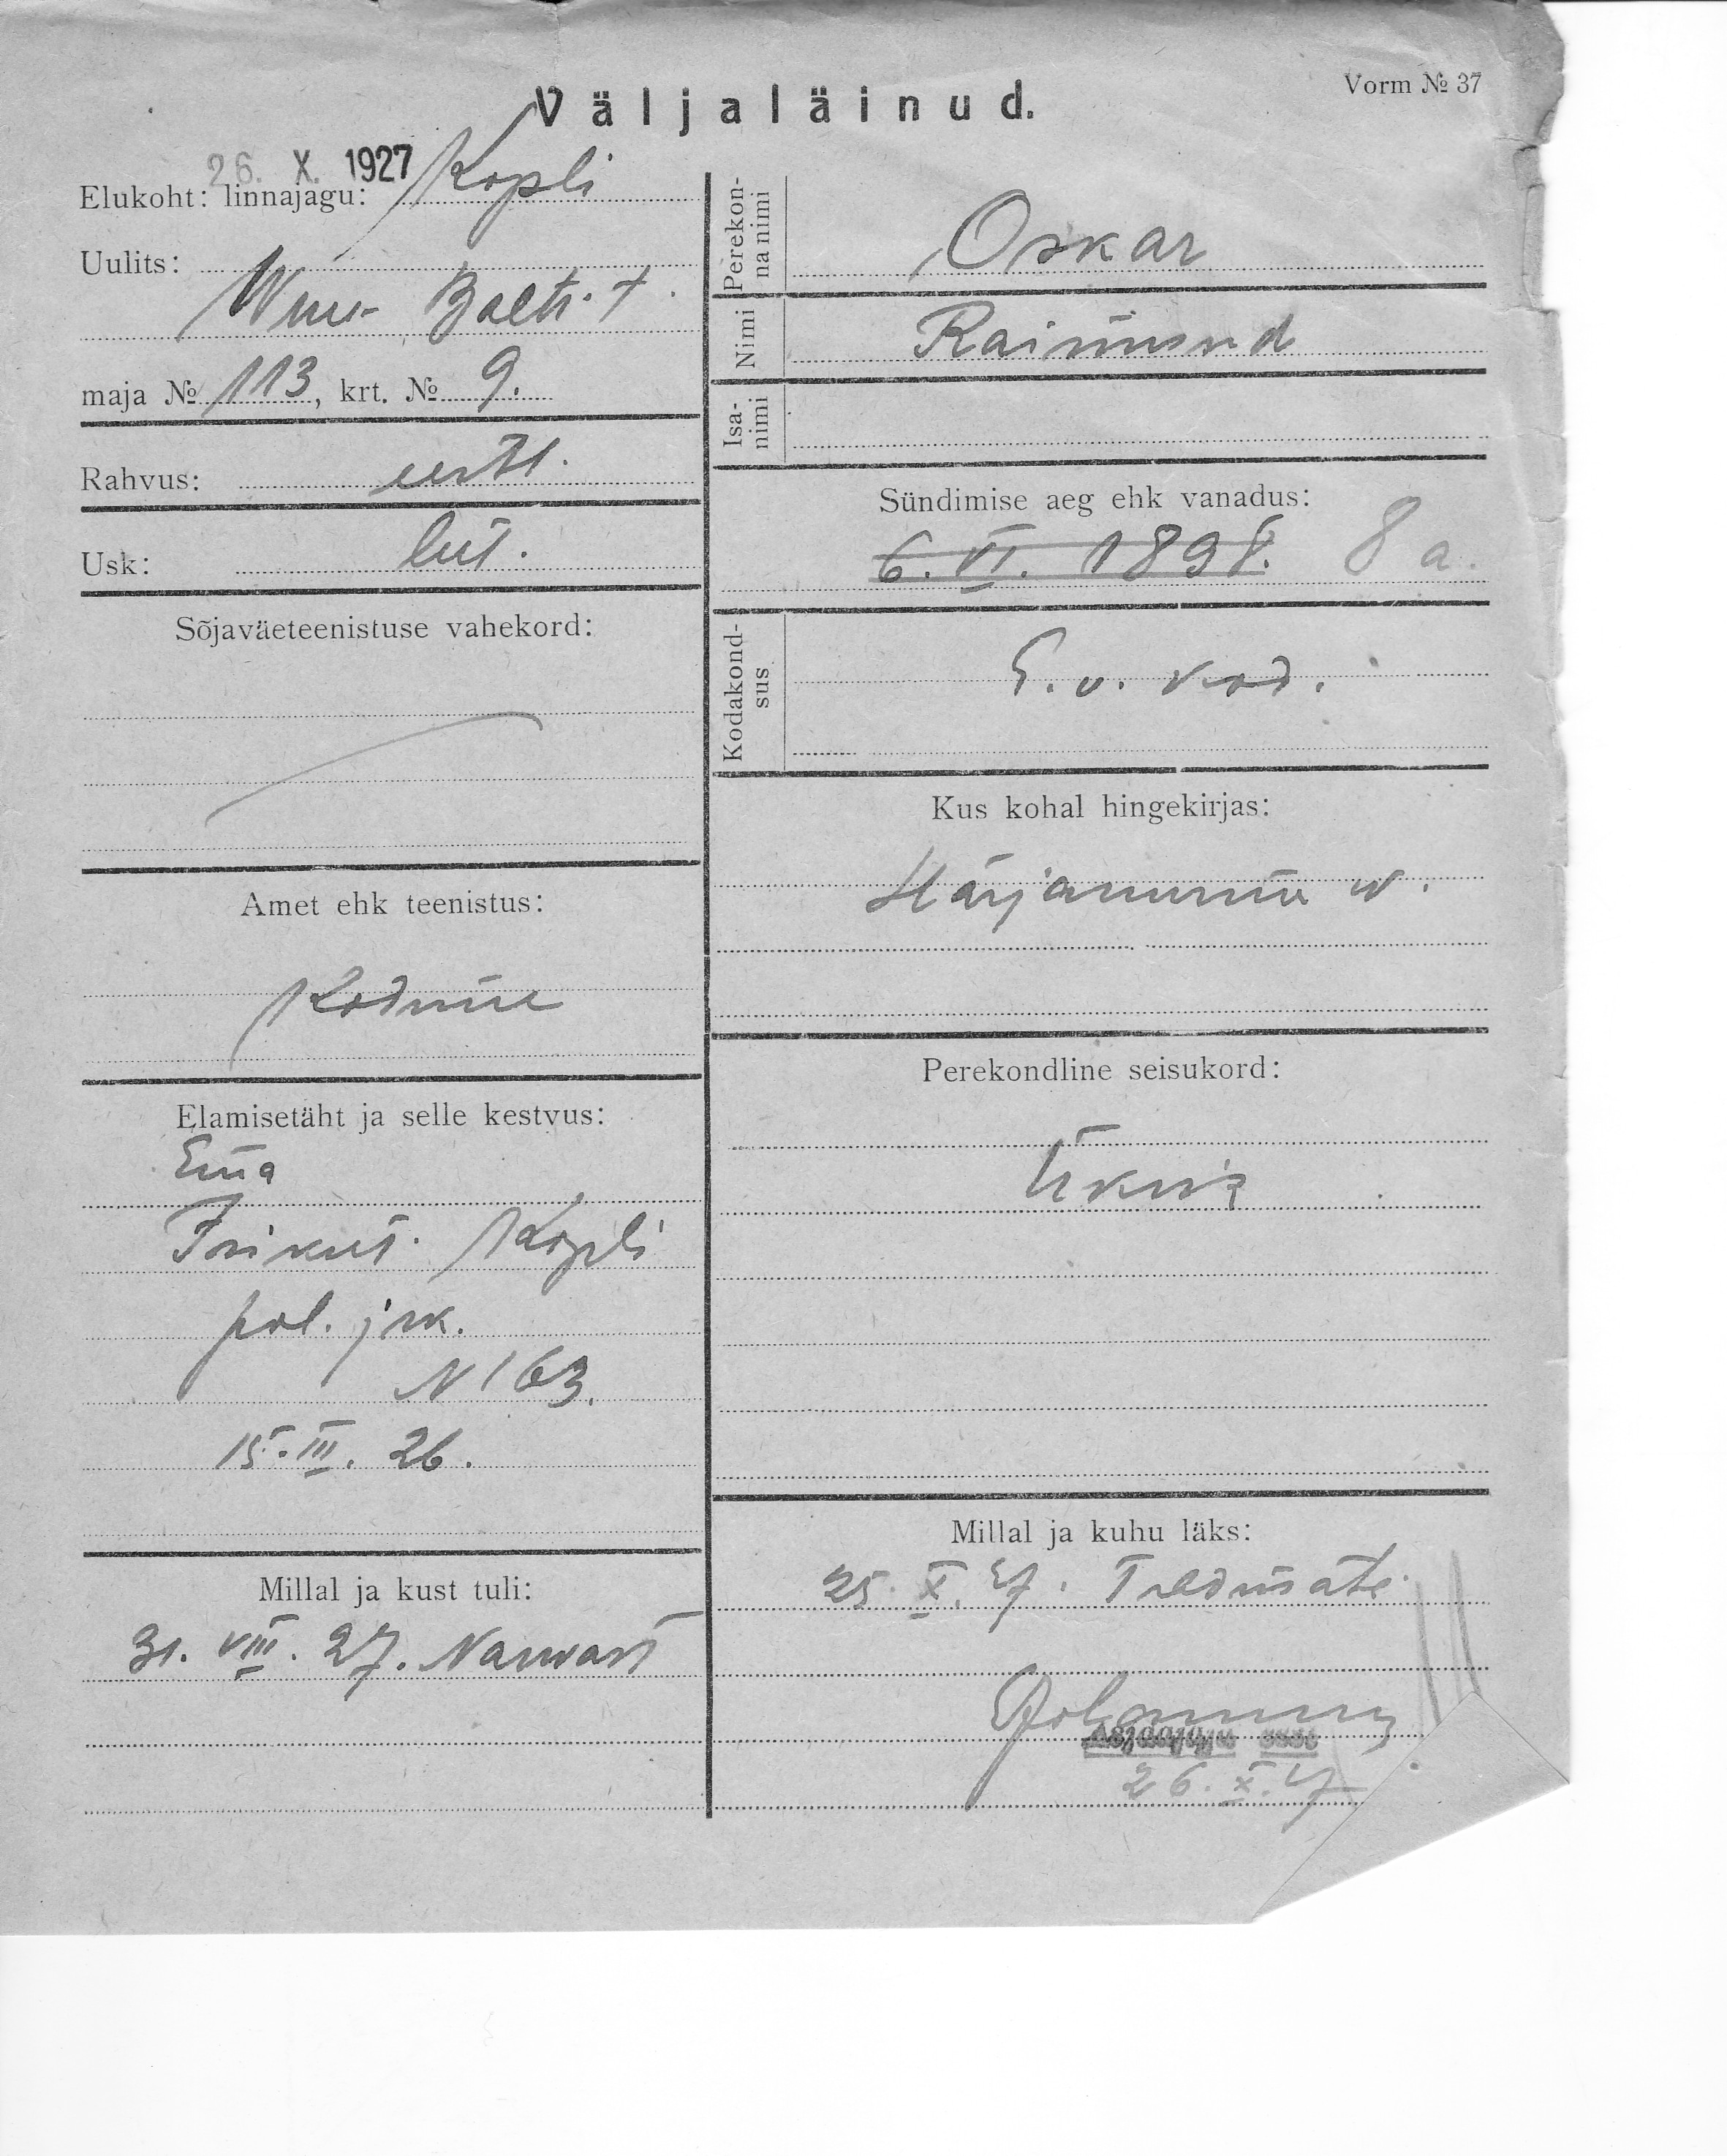 Vorm № 37
Väljaläinud.
26. X. 1927
Elukoht: linnajagu: Kopli
Uulits:
Wene-Balti t.
maja № 113, krt. № 9.
Rahvus: eestl.
Usk: lut.
Sõjaväeteenistuse vahekord:
Amet ehk teenistus:
Kodune
Elamisetäht ja selle kestvus:
Ema
Isikut. Kopli
pol. jsk.
N 163.
15. III. 26.
Millal ja kust tuli:
31. VIII. 27. Narvast
Perekonnanimi
Oskar
Nimi
Raimund
Isanimi
Sündimise aeg ehk vanadus:
6. VI. 1898. 8 a.
Kodakondsus
E. v. kod.
Kus kohal hingekirjas:
Härjanurme w.
Perekondline seisukord:
Üksik
Millal ja kuhu läks:
25. X. 27. Teadmata
26. X. 27